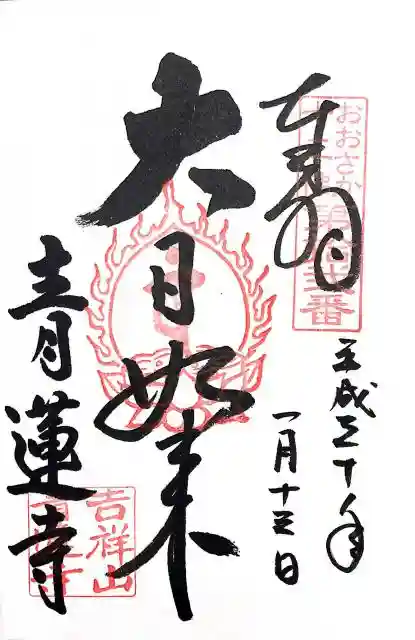 奉拝
おおさか十三仏霊場第十弐番
平成三十年
一月十三日
大日如来
青蓮寺
吉祥山